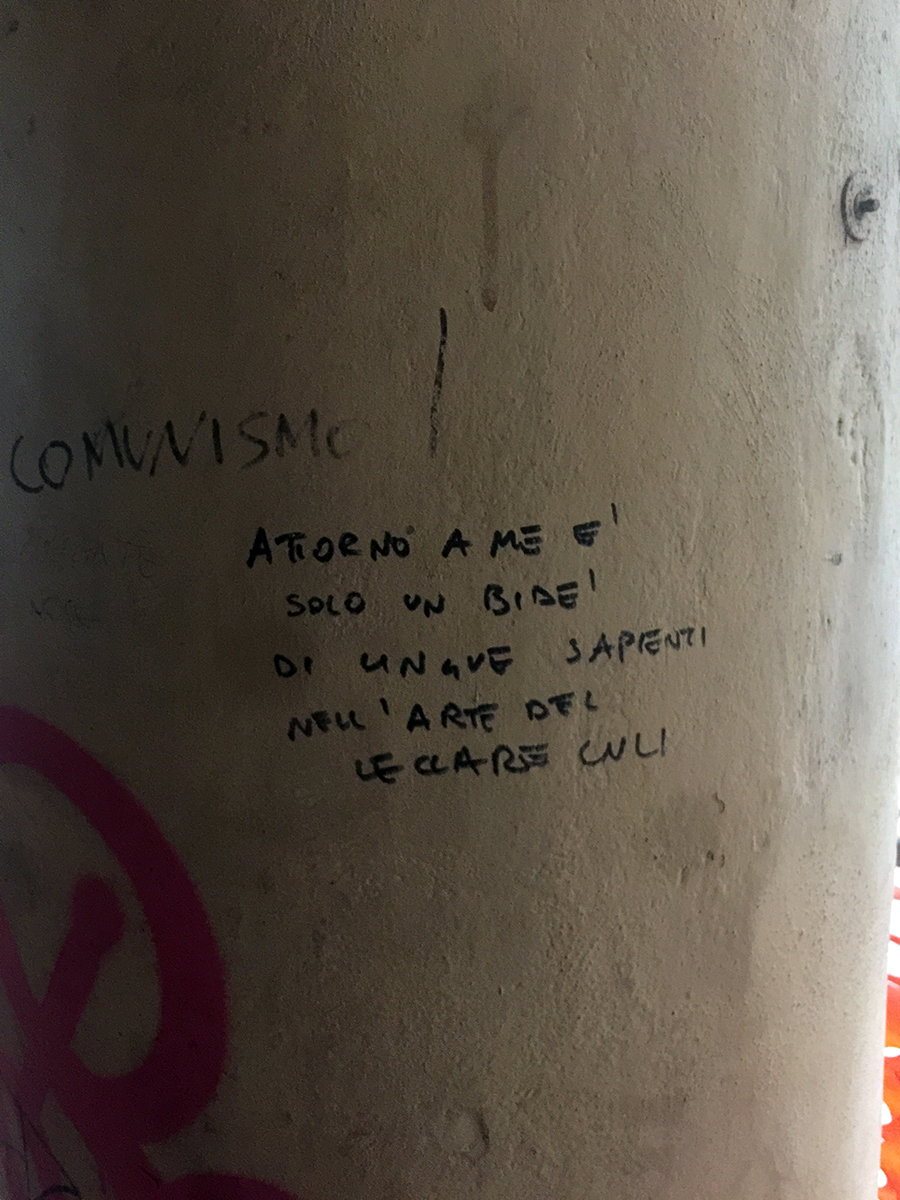 COMUNISMO
ATTORNO A ME E'
SOLO UN BIDE'
DI LINGUE SAPIENTI
NELL'ARTE DEL
LECCARE CULI